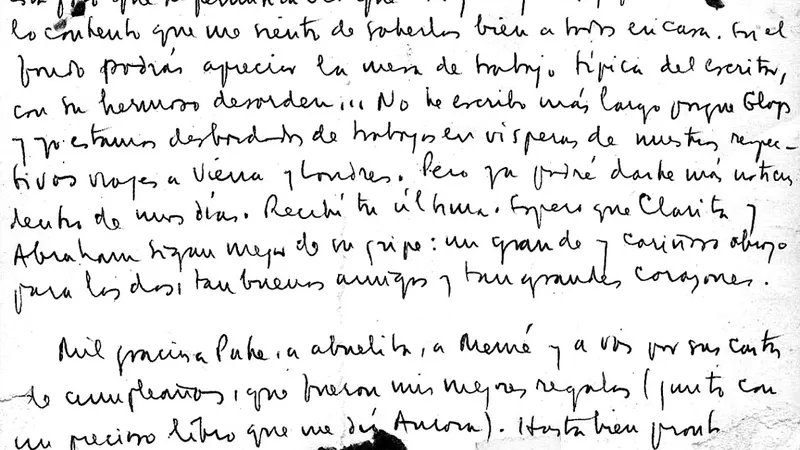 lo contento que me siento de saberlos bien a todos en casa. En el
fondo podrás apreciar la mesa de trabajo típica del escritor,
con su hermoso desorden... No te escribo más largo porque Glop
y yo estamos desbordados de trabajos en vísperas de nuestros respec-
tivos viajes a Viena y Londres. Pero ya podré darte más noticias
dentro de unos días. Recibí tu última. Espero que Clarita y
Abraham sigan mejor de su gripe: un grande y cariñoso abrazo
para los dos, tan buenos amigos y tan grandes corazones.
Mil gracias a Pake, a abuelita, a Memé y a vos por sus cartas
de cumpleaños, que fueron mis mejores regalos (junto con
un precioso libro que me dió Aurora). Hasta bien pronto